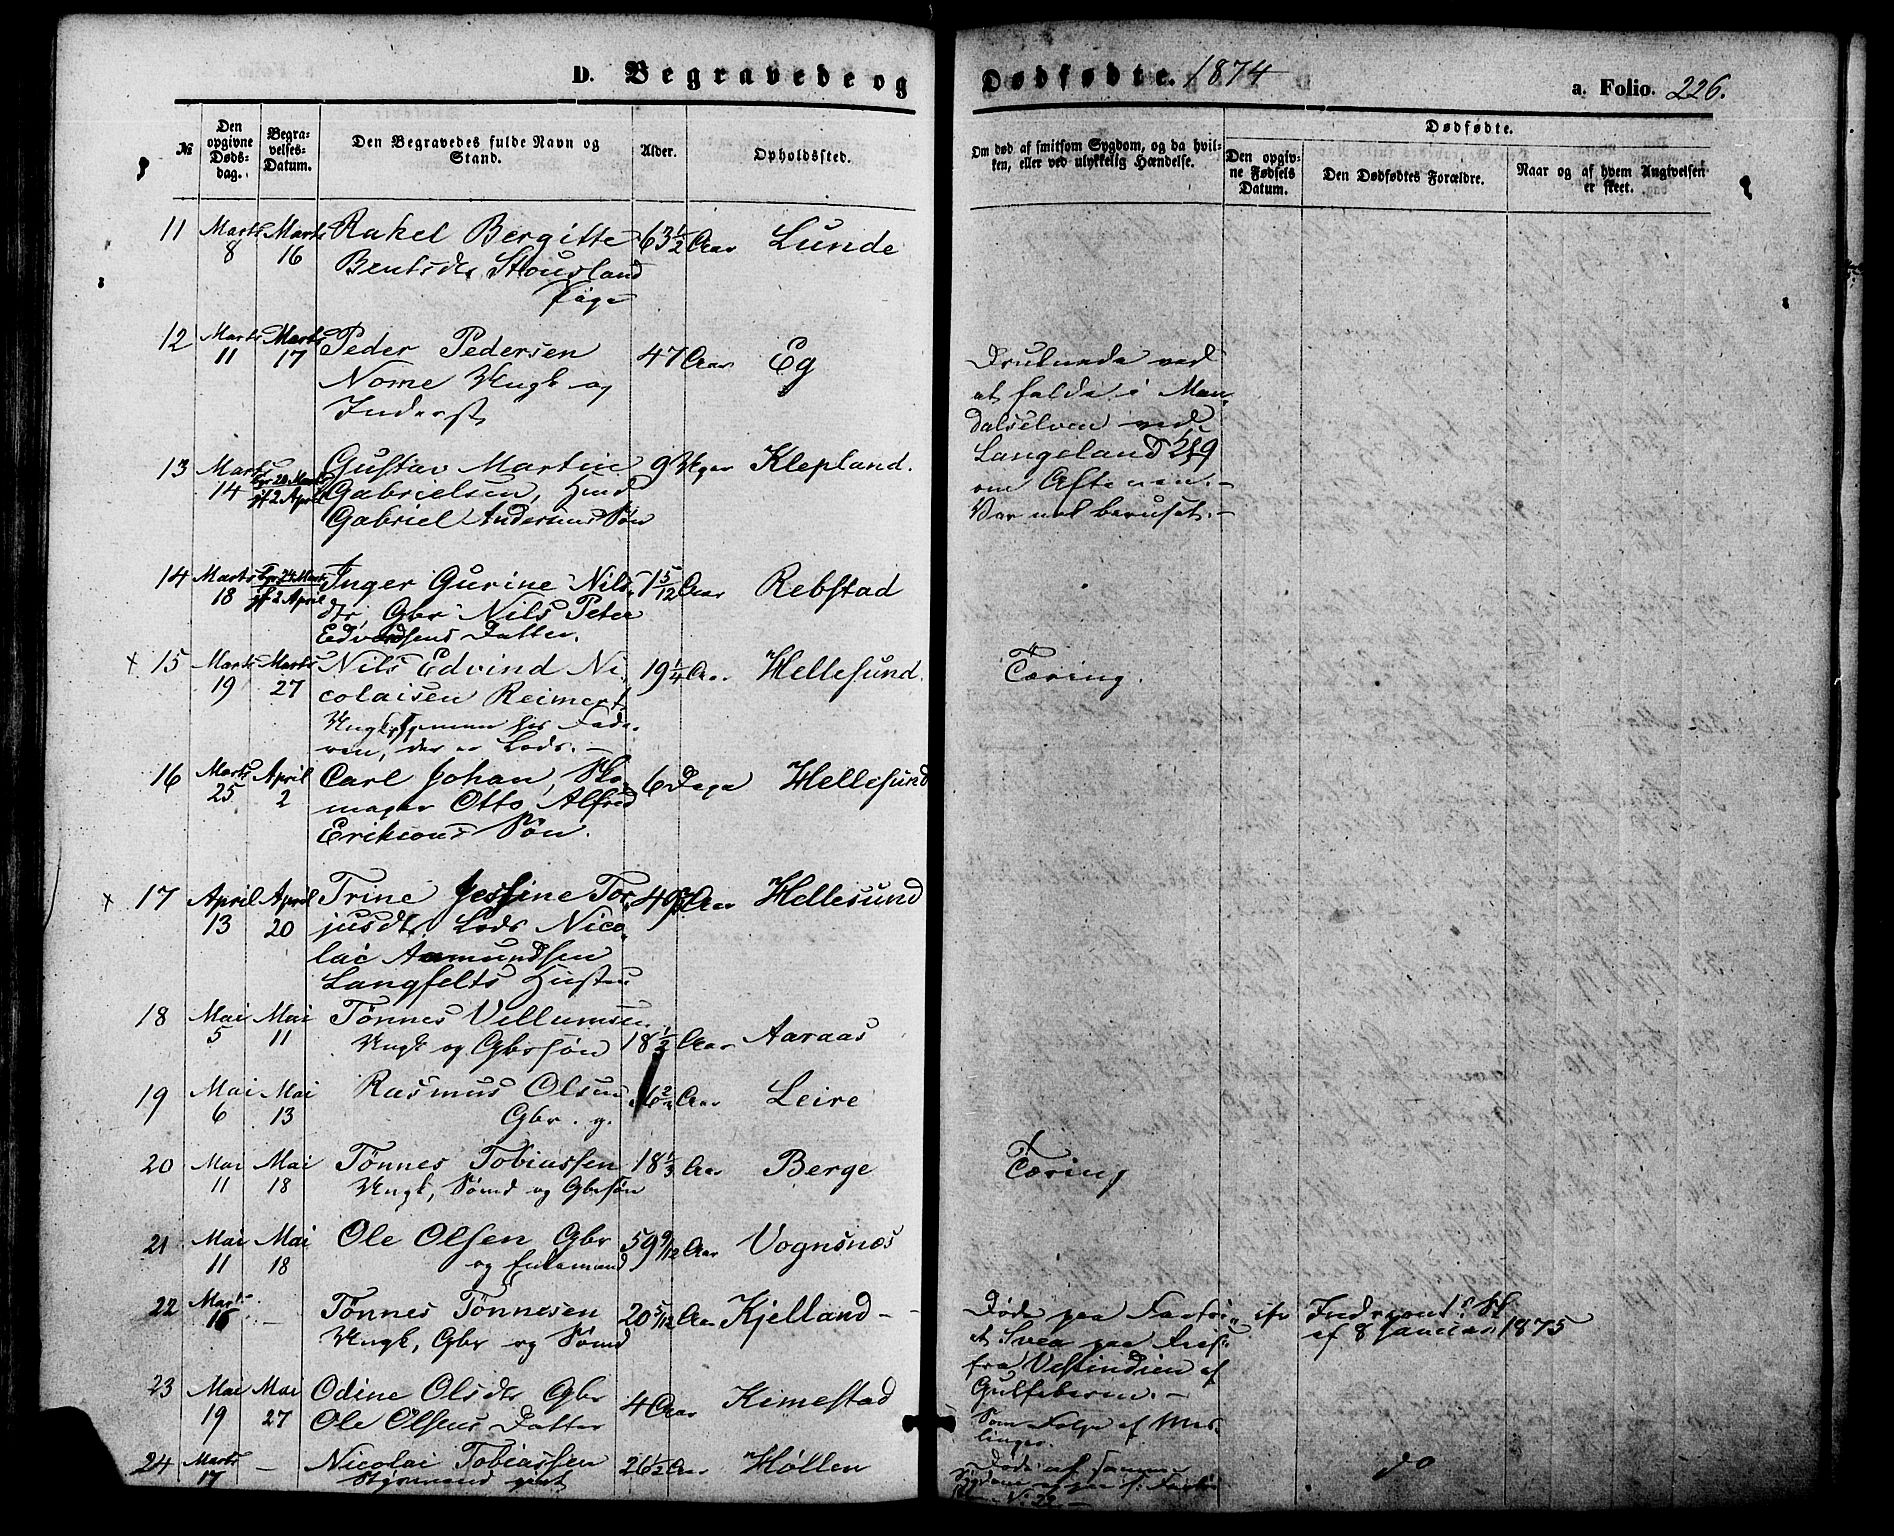 D. Begravede og Dødfødte. 1874
a. Folio. 226.
№
Den opgivne Døds-dag.
Begra-velses-Datum.
Den Begravedes fulde Navn og Stand.
Alder.
Opholdssted.
Om død af smitsom Sygdom, og da hvil-ken, eller ved ulykkelig Hændelse.
Dødfødte.
Den opgiv-ne Fødsels Datum.
Den Dødfødtes Forældre.
Naar og af hvem Angivelsen er skeet.
11 Marts 8 Marts 16 Rakel Bergitte 63 1/2 Aar Lunde
Bentsdtr Stousland
Pige
12 Marts 11 Marts 17 Peder Pedersen 47 Aar Eg
Nome Ungk og
Inderst
Druknede ved
at falde i Man-
dalselven ved
Langeland 21/9
om Aftenen.
Var nok beruset.
13 Marts 14 Bgr 20 Marts jf 2 April Gustav Martin 9 Uger Klepland.
Gabrielsen, Hmd
Gabriel Andersens Søn
14 Marts 18 Bgr 24 Marts jf 2 April Inger Gurine Nils- 1 5/12 Aar Rebstad
dtr, Gbr Nils Peter
Edvardsens Datter.
x 15 Marts 19 Marts 27 Nils Edvind Ni- 19 1/4 Aar Hellesund. Tæring.
colaisen Reimert
Ungk, hjemme hos Fade-
ren, der er Lods.
16 Marts 25 April 2 Carl Johan, Sko- 6 Dage Hellesund
mager Otto Alfred
Eriksons Søn.
x 17 April 13 April 20 Trine Jessine Tor- 49 Aar Hellesund
jusdtr Lods Nico-
lai Aamundsen
Langfelts Hustru
18 Mai 5 Mai 11 Tønnes Villumsen 18 1/2 Aar Aaraas
Ungk og Gbrsøn
19 Mai 6 Mai 13 Rasmus Olsen Aar Leire
Gbr. g.
20 Mai 11 Mai 18 Tønnes Tobiassen 18 1/3 Aar Berge Tæring
Ungk, Sømd og Gbrsøn
21 Mai 11 Mai 18 Ole Olsen Gbr 59 9/12 Aar Vognsnes
og Enkemand
22 Marts 16 — Tønnes Tønnesen 20 5/12 Aar Kjelland —
Ungk, Gbr og Sømd
Døde paa Fartøi-
et Svea paa Reise
fra Vestindien af
Gulfeberen.
af 8 Januar 1875
23 Mai 19 Mai 27 Odine Olsdtr Gbr 4 Aar Kimestad
Ole Olsens Datter
Som Følge af Mes-
linger.
24 Marts 17 — Nicolai Tobiassen 26 1/2 Aar Høllen
Styrmand gift
Døde af samme
Sygdom
No 22
do